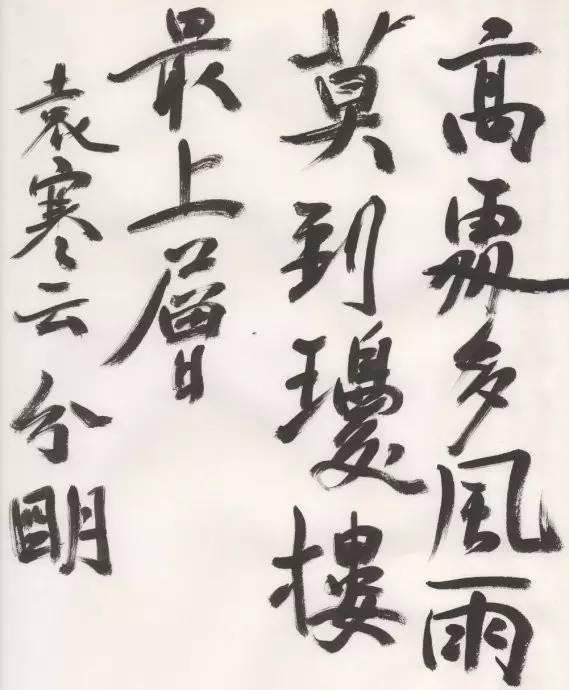 高處多風雨
莫到瓊樓
最上層
袁寒云分明